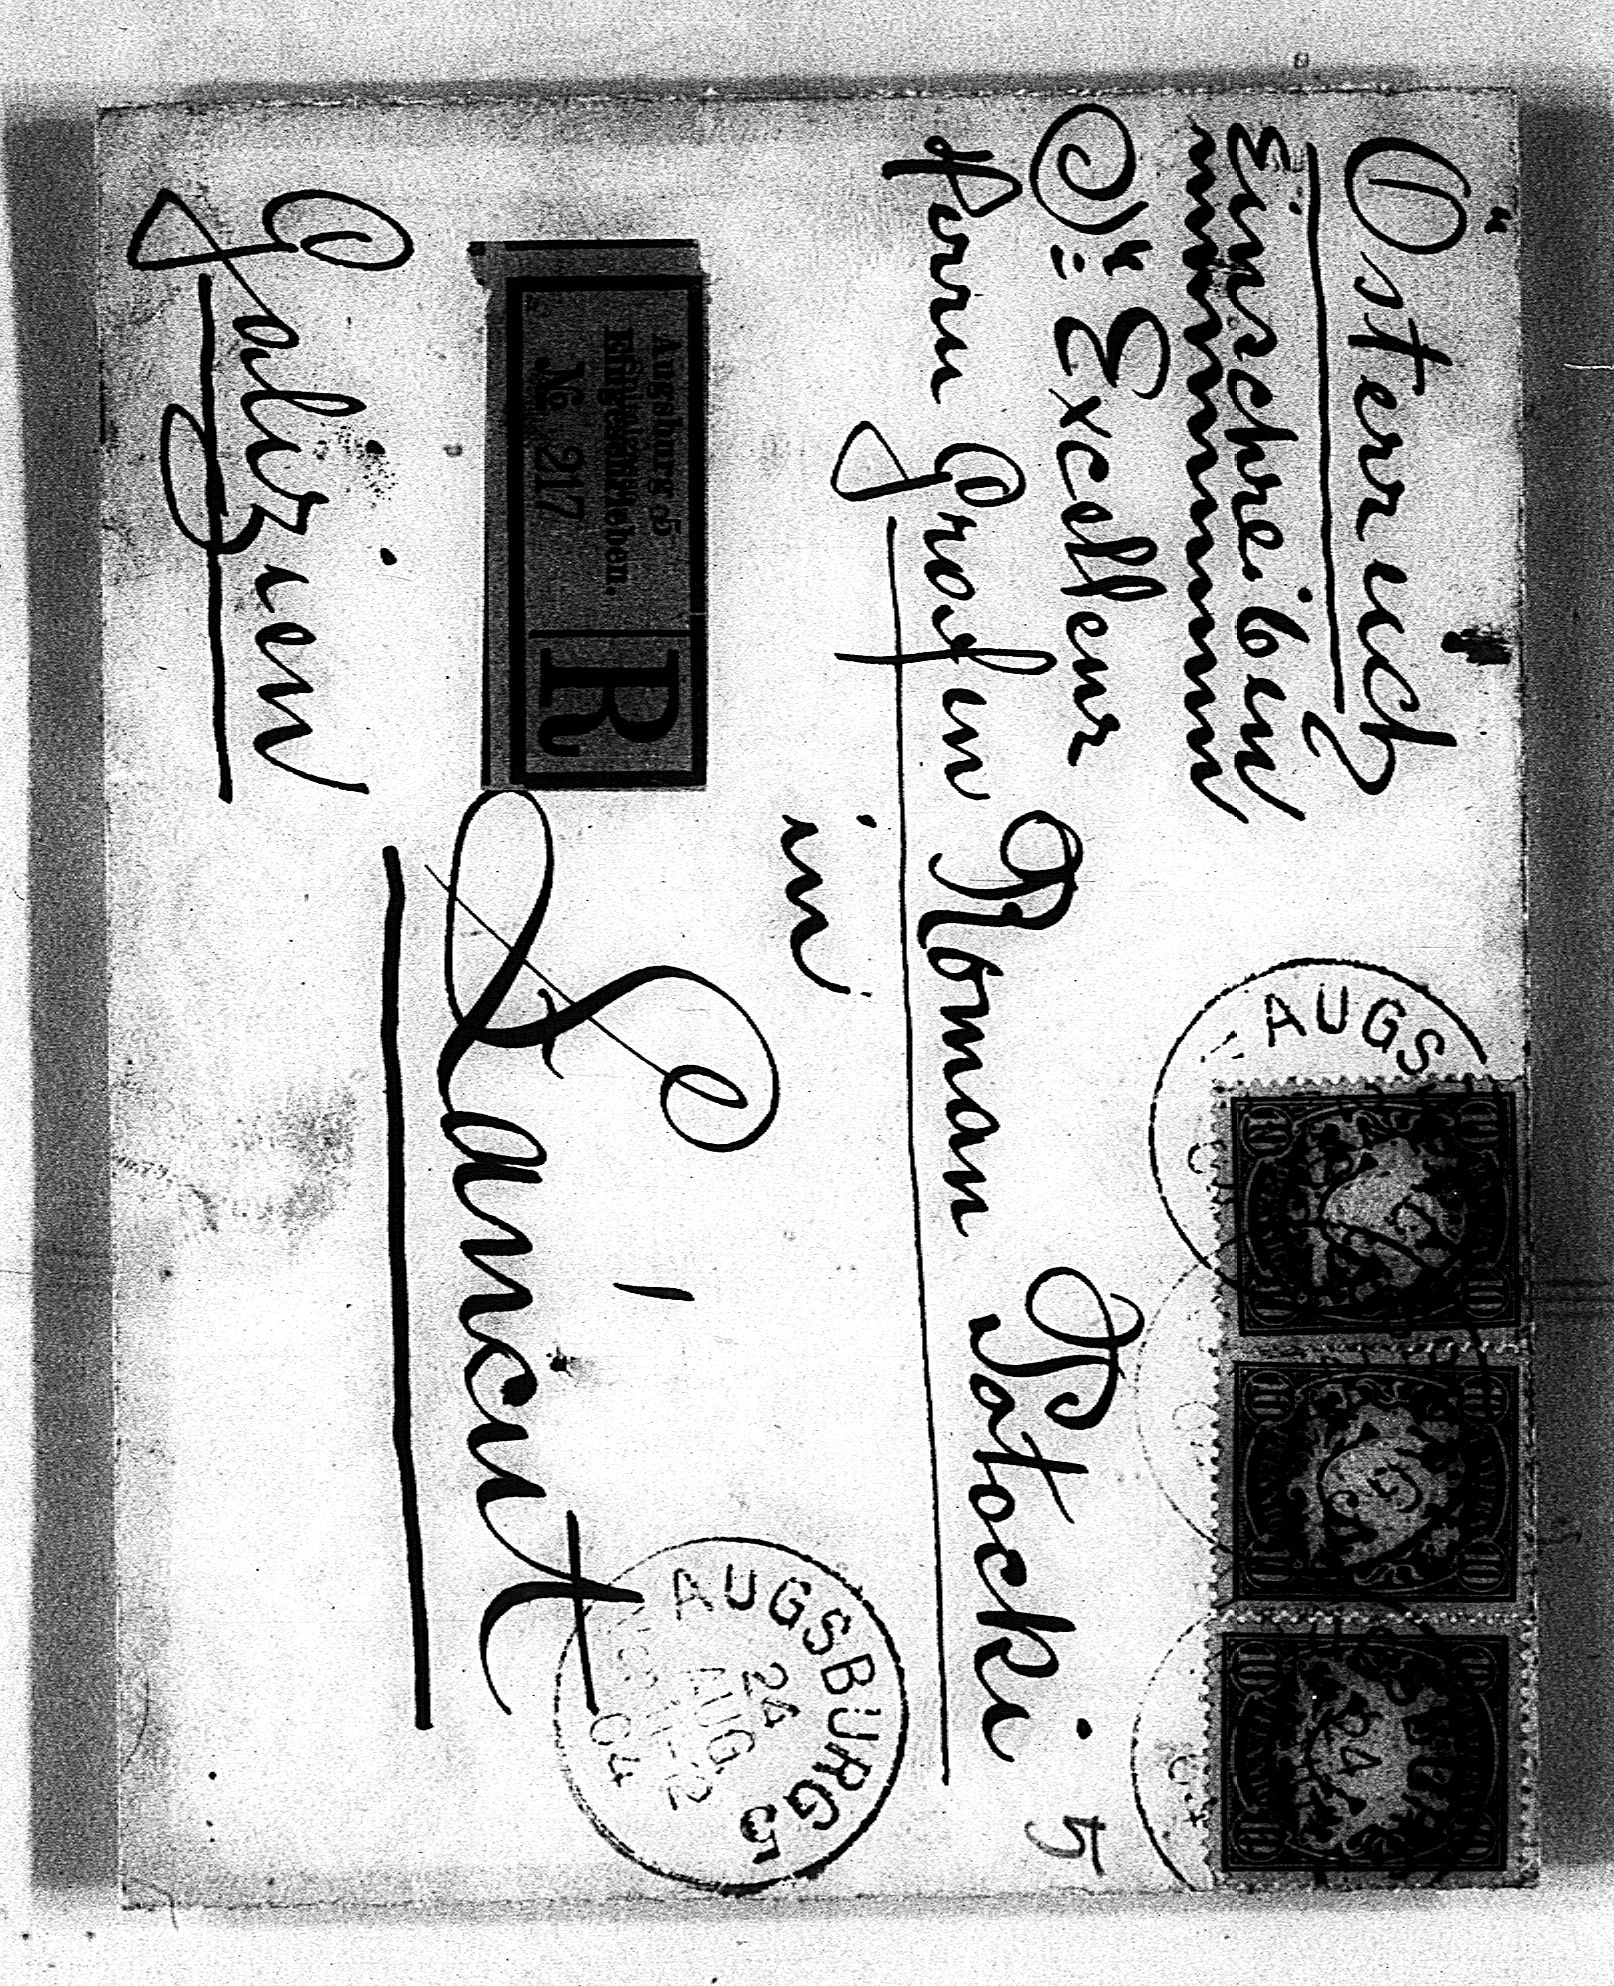 Österreich
Einschreiben
Sr: Excelleur
Herrn Grafen Roman Potocki
in
Łańcut
Galizien
Augsburg 5
Eingeschrieben.
№ 217
R
AUGSBURG 5
24
AUG.
04
AUGS
10
10
10
5